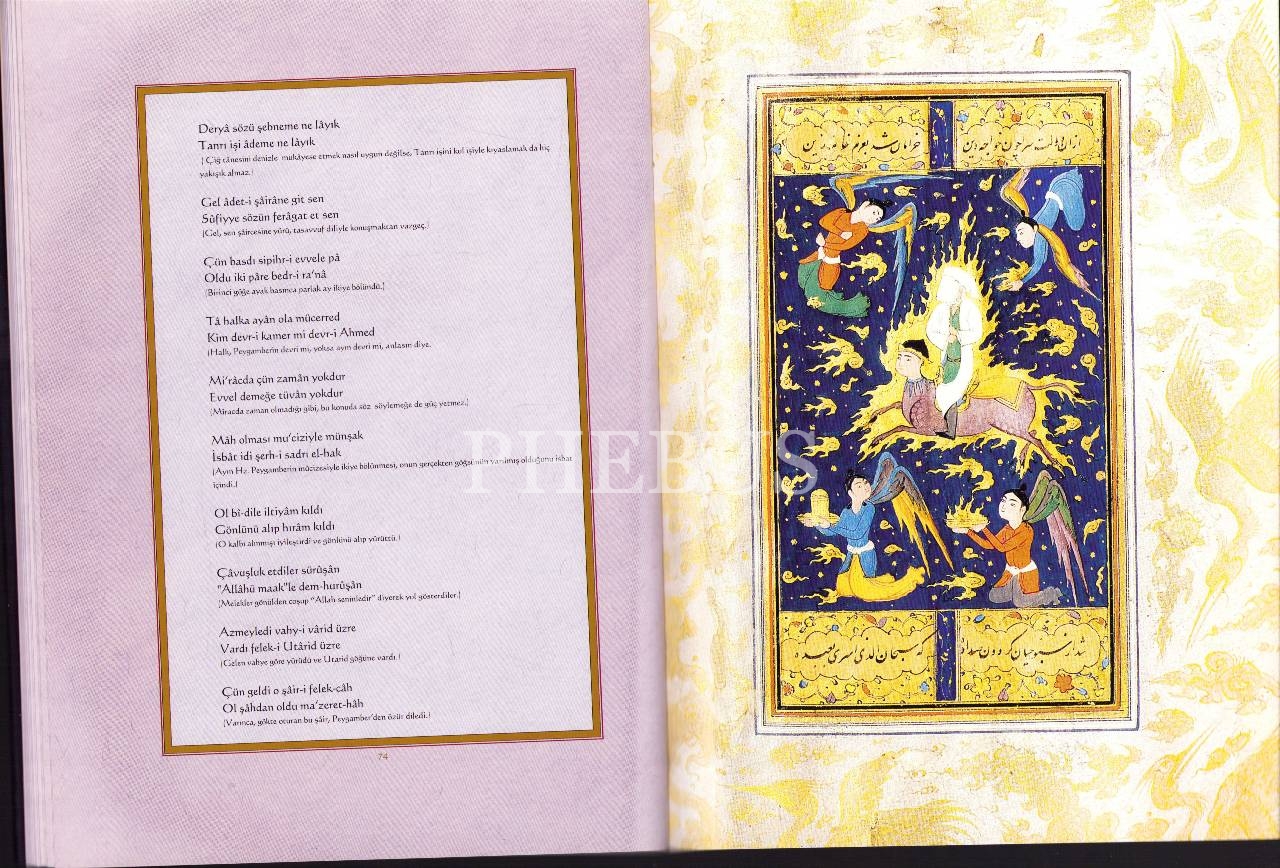 Deryâ sözü şebneme ne lâyık
Tanrı işi âdeme ne lâyık
(Çiğ tânesini denizle mukâyese etmek nasıl uygun değilse, Tanrı işini kul işiyle kıyaslamak da hiç
yakışık almaz.)
Gel âdet-i şâirâne git sen
Sûfiyye sözün ferâgat et sen
(Gel, sen şâircesine yürü, tasavvuf diliyle konuşmaktan vazgeç.)
Çün basdı sipihr-i evvele pâ
Oldu iki pâre bedr-i ra'nâ
(Birinci göğe ayak basınca parlak ay ikiye bölündü.)
Tâ halka ayân ola mücerred
Kim devr-i kamer mi devr-i Ahmed
(Halk, Peygamberin devri mi, yoksa ayın devri mi, anlasın diye.
Mi'râcda çün zamân yokdur
Evvel demeğe tüvân yokdur
(Miracda zaman olmadığı gibi, bu konuda söz söylemeğe de güç yetmez.)
Mâh olması mu'ciziyle münşak
İsbât idi şerh-i sadrı el-hak
(Ayın Hz. Peygamberin mûcizesiyle ikiye bölünmesi, onun gerçekten göğsünün yarılmış olduğunu isbat
içindi.)
Ol bî-dile iltiyâm kıldı
Gönlünü alıp hırâm kıldı
(O kalbi alınmışı iyileştirdi ve gönlünü alıp yürüttü.)
Çâvuşluk etdiler sürûşân
"Allâhü maak"le dem-hurûşân
(Melekler gönülden coşup "Allah seninledir" diyerek yol gösterdiler.)
Azmeyledi vahy-i vârid üzre
Vardı felek-i Utârid üzre
(Gelen vahye göre yürüdü ve Utarid göğüne vardı.)
Çün geldi o şâir-i felek-câh
Ol şâhdan oldu ma'zeret-hâh
(Varınca, gökte oturan bu şâir, Peygamber'den özür diledi.)
74
PHEBUS
که سبحان الذی اسری بعبده